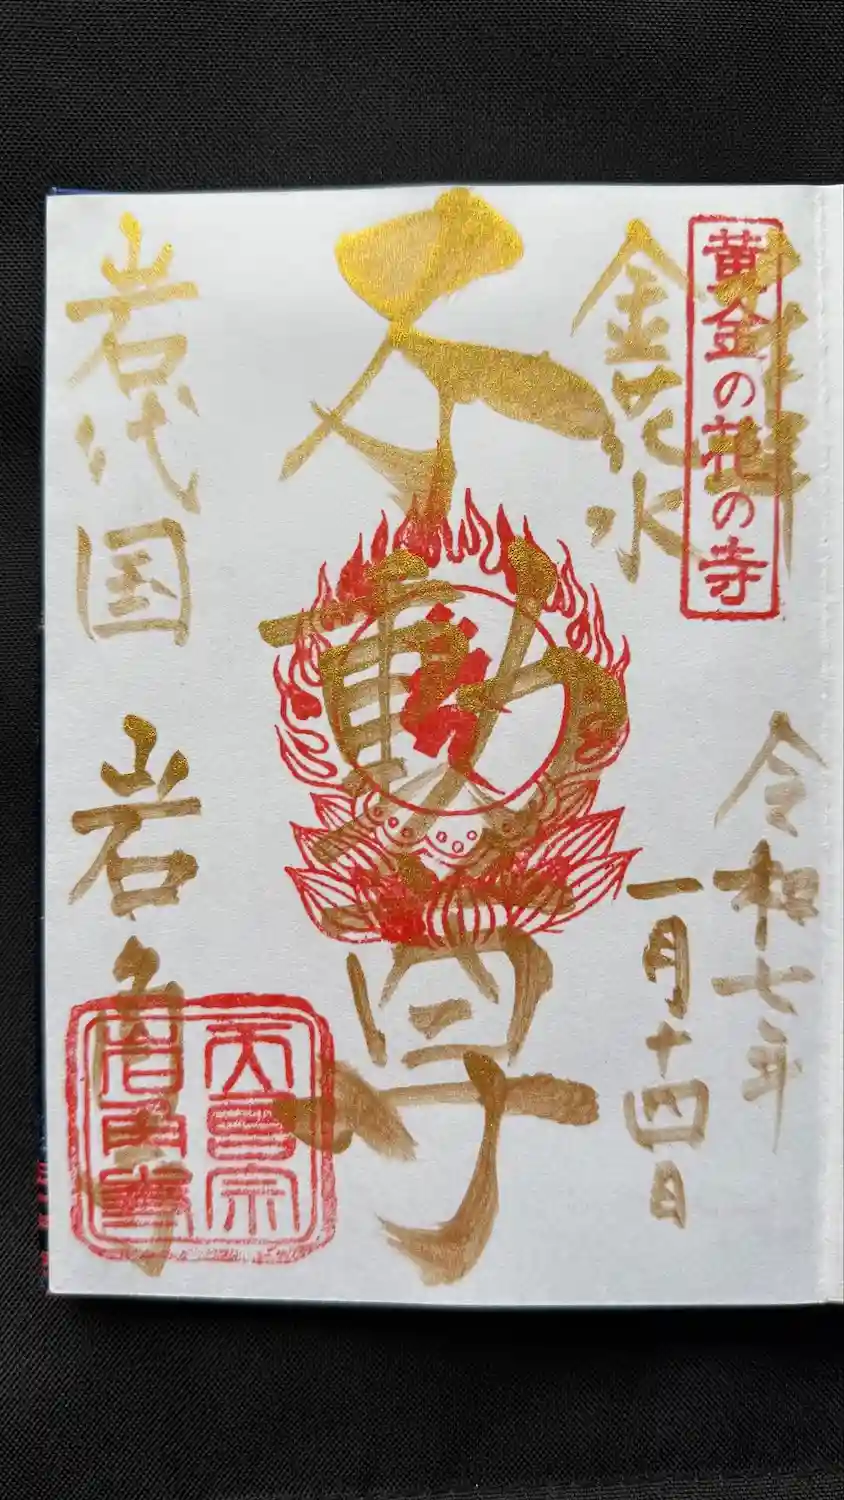 奉拝
黄金の花の寺
金花水
令和七年
一月十四日
不動尊
岩代国 岩角寺
天台宗
岩角寺